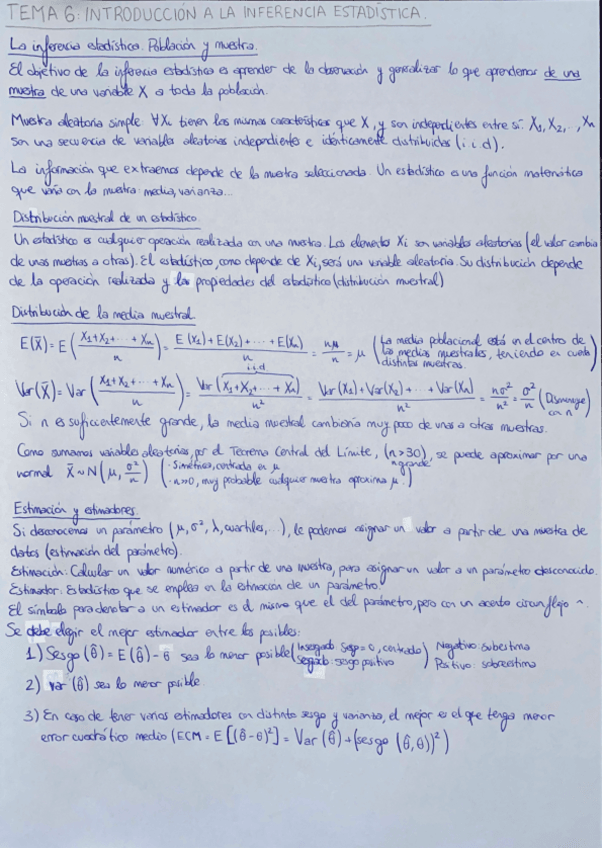 TEMA 6: INTRODUCCIÓN A LA INFERENCIA ESTADÍSTICA.
La inferencia estadística. Población y muestra.
El objetivo de la inferencia estadística es aprender de la observación y generalizar lo que aprendemos de una
muestra de una variable X a toda la población.
Muestra aleatoria simple: ∀Xi tienen las mismas características que X, y son independientes entre sí. X₁, X₂, .., Xn
son una secuencia de variables aleatorias independientes e idénticamente distribuidas (i.i.d).
La información que extraemos depende de la muestra seleccionada. Un estadístico es una función matemática
que varía con la muestra: media, varianza...
Distribución muestral de un estadístico.
Un estadístico es cualquier operación realizada con una muestra. Los elementos Xi son variables aleatorias (el valor cambia
de unas muestras a otras). El estadístico, como depende de Xi, será una variable aleatoria. Su distribución depende
de la operación realizada y las propiedades del estadístico (distribución muestral)
Distribución de la media muestral
E(X̄) = E((X₁+X₂+···+Xn)/n) = (E(X₁)+E(X₂)+···+E(Xn))/n = nμ/n = μ (La media poblacional está en el centro de las medias muestrales, teniendo en cuenta distintas muestras.)
i.i.d
Var(X̄) = Var((X₁+X₂+···+Xn)/n) = Var(X₁+X₂+···+Xn)/n² = (Var(X₁)+Var(X₂)+··+Var(Xn))/n² = nσ²/n² = σ²/n (Disminuye con n)
Si n es suficientemente grande, la media muestral cambiaría muy poco de unas a otras muestras.
Como sumamos variables aleatorias, por el Teorema Central del Límite, (n>30), se puede aproximar por una
n grande
normal X̄~N(μ, σ²/n) (· Simétrica, centrada en μ · n>0, muy probable cualquier muestra aproxima μ.)
Estimación y estimadores.
Si desconocemos un parámetro (μ, σ², λ, cuartiles, ...), le podemos asignar un valor a partir de una muestra de
datos (estimación del parámetro).
Estimación: Calcular un valor numérico a partir de una muestra, para asignar un valor a un parámetro desconocido.
Estimador: Estadístico que se emplea en la estimación de un parámetro.
El símbolo para denotar a un estimador es el mismo que el del parámetro, pero con un acento circunflejo ^.
Se debe elegir el mejor estimador entre los posibles:
1) Sesgo(θ̂) = E(θ̂) - θ sea lo menor posible (Insesgado: Sesgo = 0, centrado Segado: sesgo positivo) Negativo: subestima Positivo: sobreestima
2) Var(θ̂) sea lo menor posible
3) En caso de tener varios estimadores con distinto sesgo y varianza, el mejor es el que tenga menor
error cuadrático medio (ECM = E[(θ̂-θ)²] = Var(θ̂)+(sesgo(θ̂,θ))²)